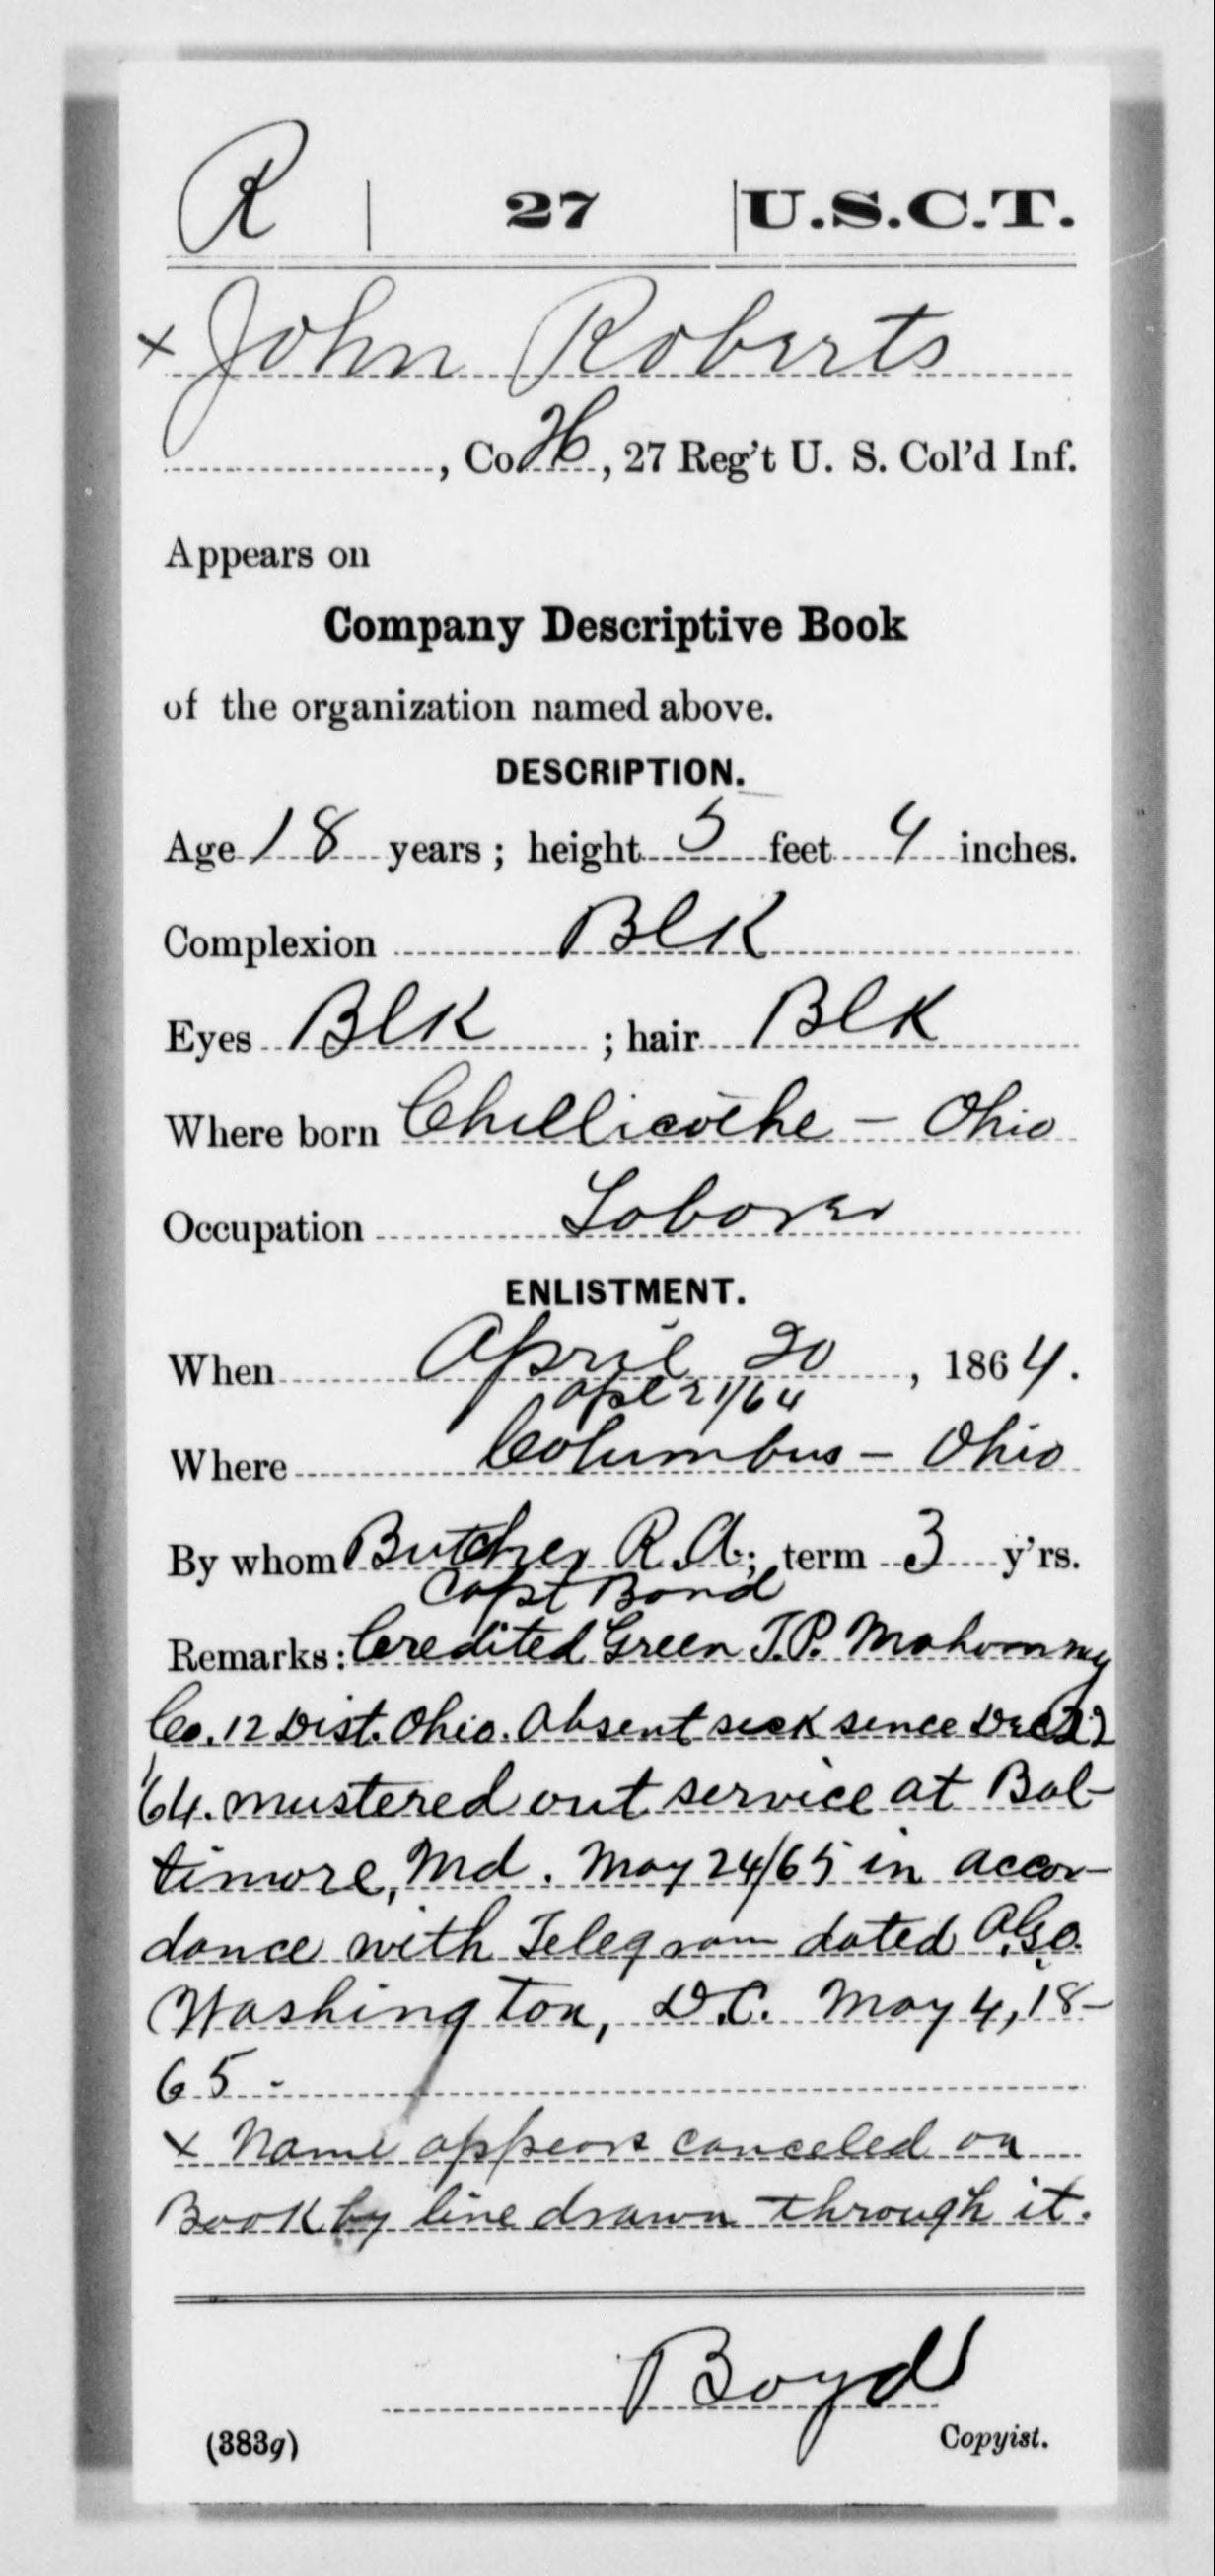 R | 27 | U.S.C.T.
x John Roberts
, Co. H, 27 Reg't U. S. Col'd Inf.
Appears on
Company Descriptive Book
of the organization named above.
DESCRIPTION.
Age 18 years; height 5 feet 4 inches.
Complexion Blk
Eyes Blk; hair Blk
Where born Chillicothe - Ohio
Occupation Laborer
ENLISTMENT.
When April 20, 1864.
Apl 21/64
Where Columbus - Ohio
By whom Butcher R.A.; term 3 y'rs.
Capt Bond
Remarks: Credited Green T.P. Mahonny
Co. 12 Dist. Ohio. Absent sick since Dec 22
'64. mustered out service at Bal-
timore, Md. May 24/65 in accor-
dance with Telegram dated A.G.O.
Washington, D.C. May 4, 18-
65.
x Name appears canceled on
Book by line drawn through it.
Boyd
(383g) Copyist.